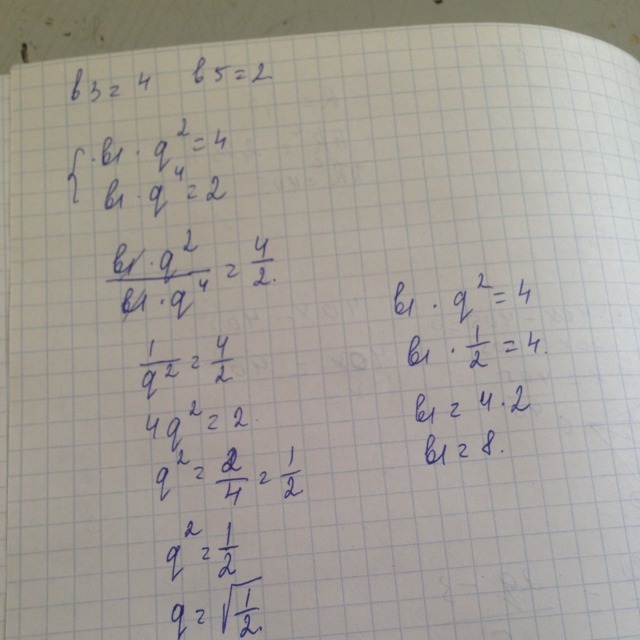 в3 = 4 в5 = 2
{ в1 · q² = 4
в1 · q⁴ = 2
(в1 · q²)/(в1 · q⁴) = 4/2
1/q² = 4/2
4q² = 2
q² = 2/4 = 1/2
q² = 1/2
q = √(1/2)
в1 · q² = 4
в1 · 1/2 = 4.
в1 = 4 · 2
в1 = 8.